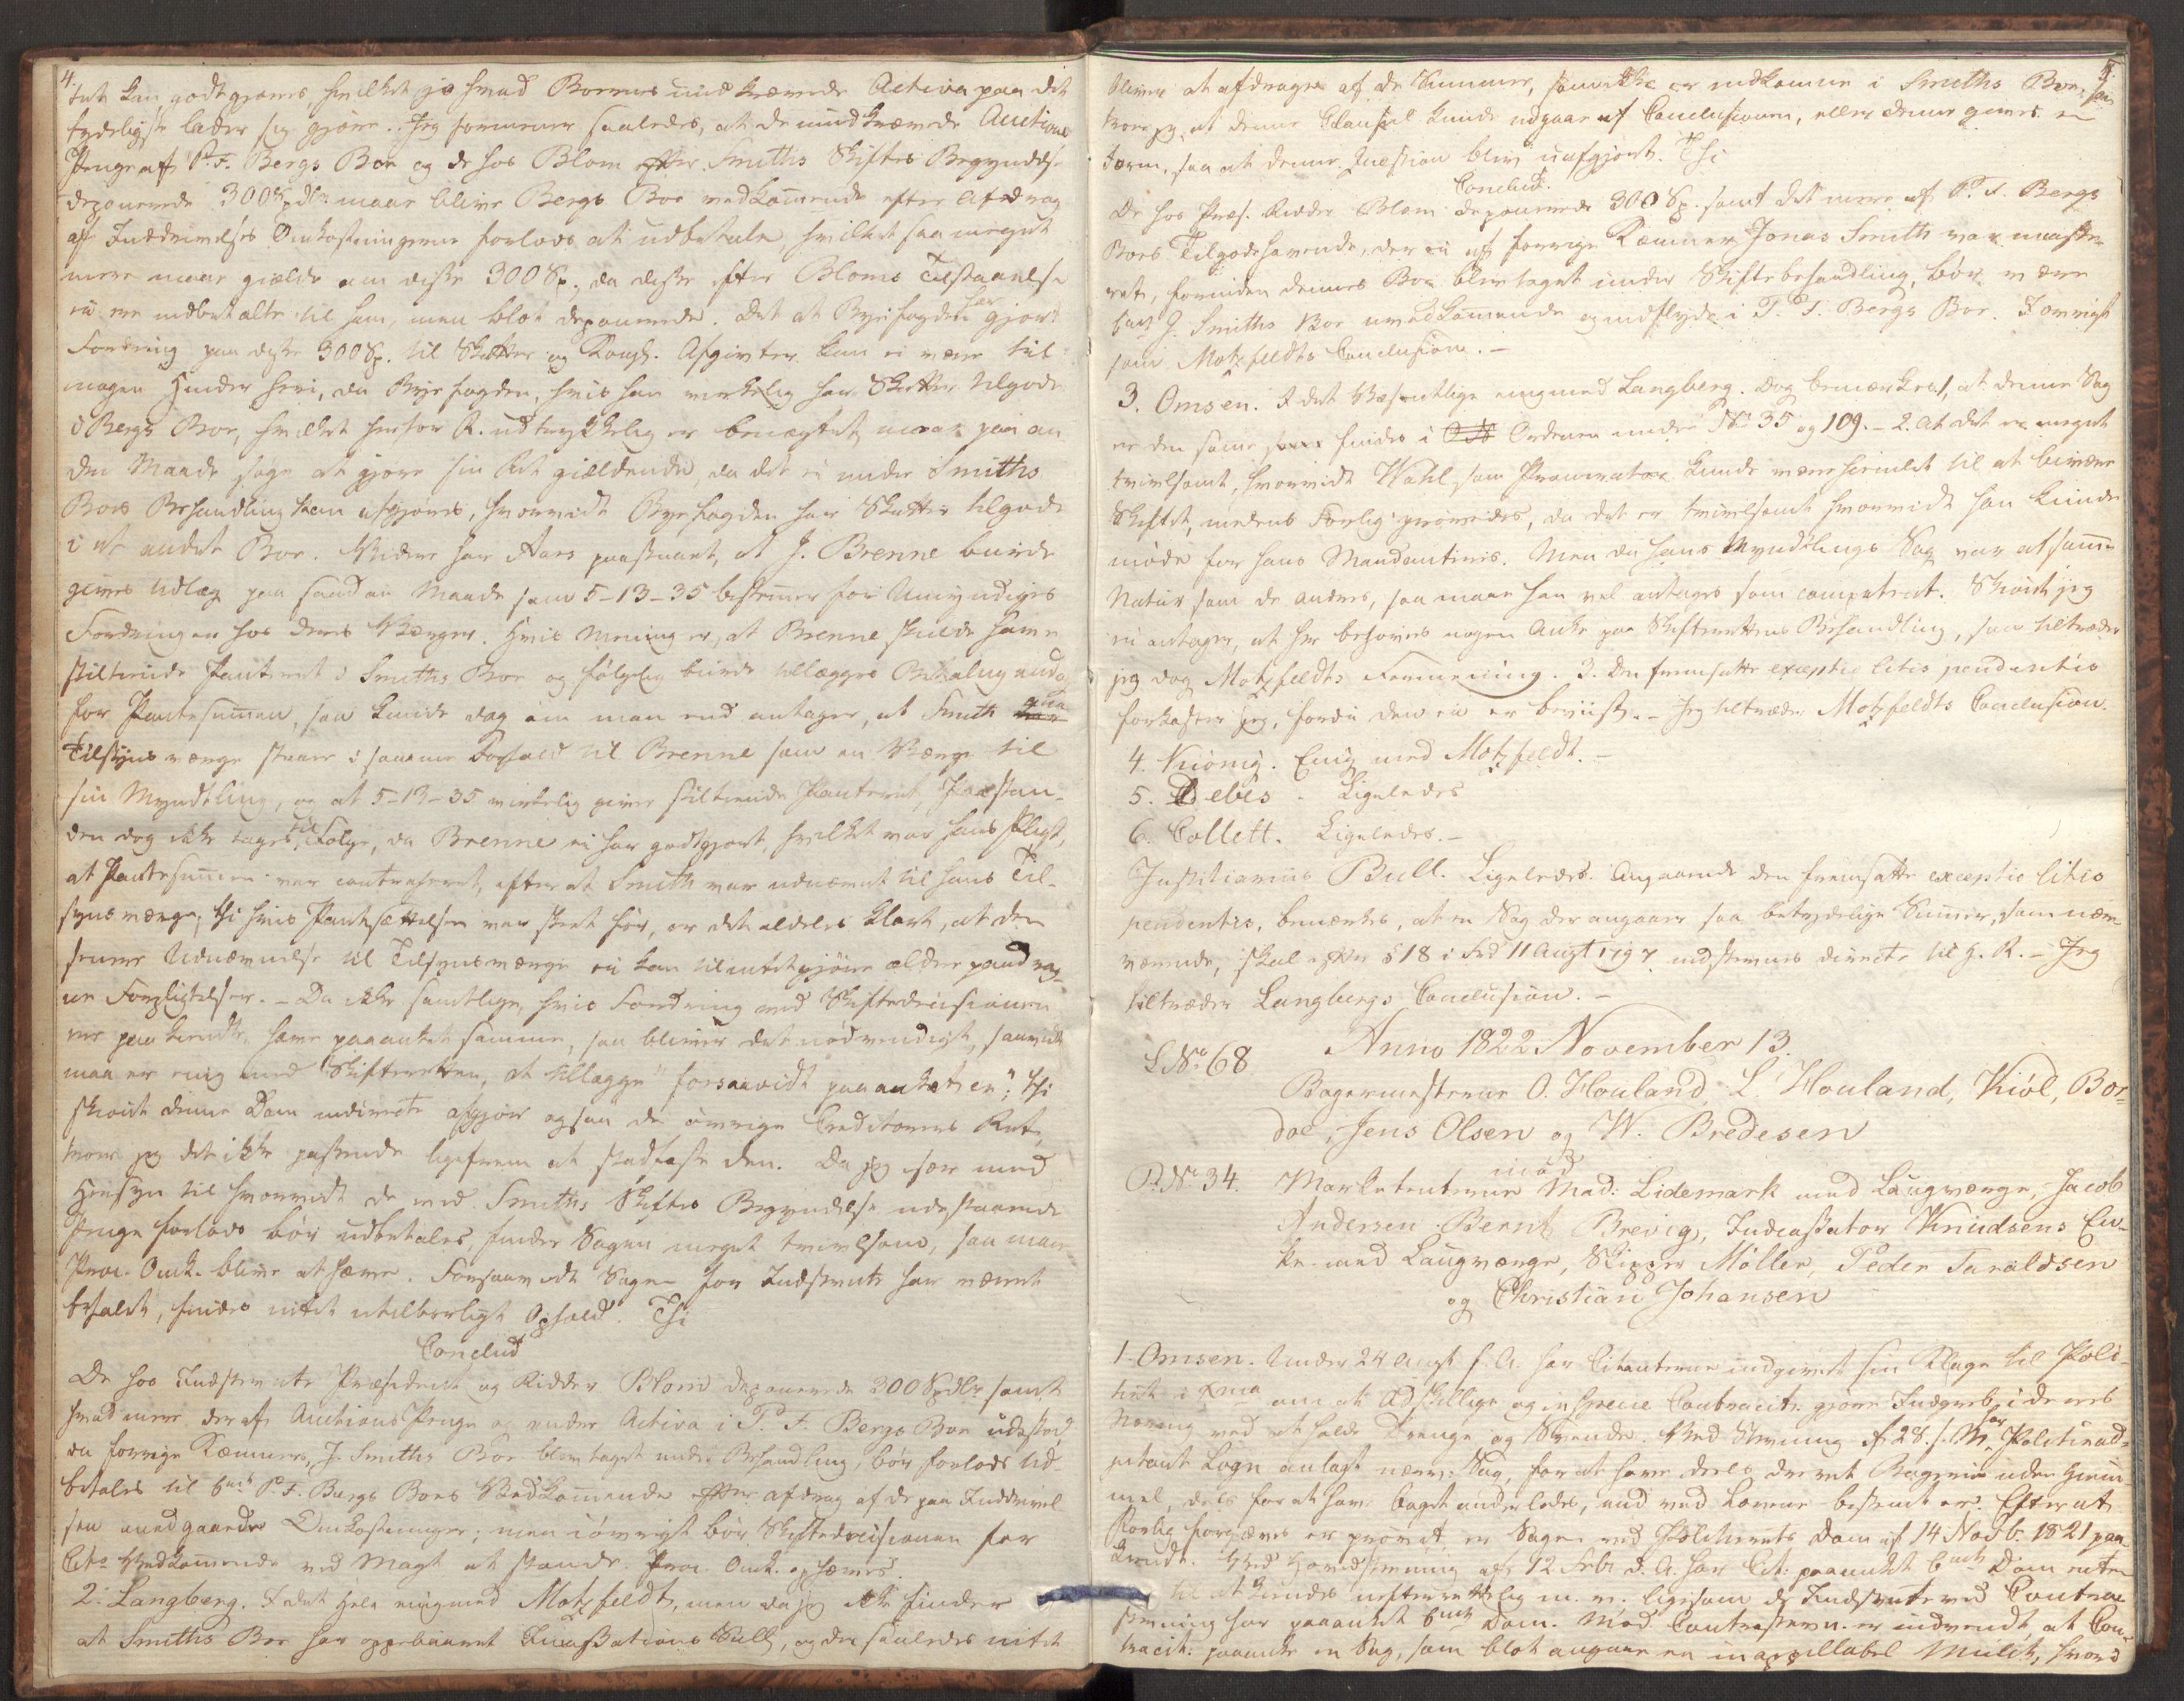 4.
tet kan godtgjøres hvilket jo hvad Boernes uindkrævede Activa paa det
tydeligste lader sig gjøre. Jeg formener saaledes, at de uindkrævede Auctions
Penge af P. F. Bergs Boe og de hos Blom efter Smiths Skiftes Begyndelse
deponerede 300 Spdlr maae blive Bergs Boe vedkommende efter Afdrag
af Inddrivelses Omkostningerne forlods at udbetale hvilket saa meget
mere maae gjælde om disse 300 Sp., da disse efter Bloms Tilstaaelse
ei ere indbetalte til ham, men blot deponerede. Det at Byefogden har gjort
Fordring paa disse 300 Sp. til Skatter og Kongl. Afgivter kan ei være til
nogen Hinder heri, da Byefogden, hvis han virkelig har Skatter tilgode
i Bergs Boe, hvilket herfor R. udtrykkelig er benægtet, maae paa an
den Maade søge at gjøre sin Ret gjældende, da det ei under Smiths
Boes Behandling kan afgjøres, hvorvidt Byefogden har Skatter tilgode
i et andet Boe. Videre har Aars paastaaet, at J. Brenne burde
gives Udlæg paa saadan Maade som 5-13-35 bestemmer for Umyndiges
Fordringer hos deres Værger. Hvis Mening er, at Brenne skulde have
stiltiende Panteret i Smiths Boe og følgelig burde tillægges Betaling ud
for Pantesummen, saa kunde dog om man end antager, at Smith qua
Tilsynsværge staaer i samme Forhold til Brenne som en Værge til
sin Myndtling, og at 5-13-35 virkelig giver stiltiende Panteret, Paastan-
den dog ikke tages til Følge, da Brenne ei har godtgjort, hvilket var hans Pligt,
at Pantesummen var contraheret, efter at Smith var udnævnt til hans Til-
synsværge; thi hvis Pantsættelsen var skeet før, er det aldeles klart, at den
senere Udnævnelse til Tilsynsværge ei kan tilintetgjøre ældre paadrag-
ne Forpligtelser. - Da ikke samtlige, hvis Fordring ved Skiftedecisionen
ere paakjendte, have paaanket samme, saa bliver det nødvendigt, saavidt
man er enig med Skifteretten, at tillægge "forsaavidt paaanket er"; thi
skiøndt denne Dom indirecte afgjør ogsaa de øvrige Creditorers Ret,
troer jeg det ikke passende ligefrem at stadfæste den. Da jeg især med
Hensyn til hvorvidt de ved Smiths Skiftes Begyndelse udestaaende
Penge forlods bør udbetales, finder Sagen meget tvivlsom, saa maae
Proc. Omk. blive at hæve. Forsaavidt Sagen for Indstevnte har været
befalet, findes intet utilbørligt Ophold. Thi
Conclud
De hos Indstevnte Præsident og Ridder Blom deponerede 300 Spdlr samt
hvad mere der af Auctions Penge og andre Activa i P. F. Bergs Boe udestod
da forrige Kæmner, J. Smiths Boe blev taget under Behandling, bør forlods ud-
betales til bem.te P. F. Bergs Boes Vedkommende efter Afdrag af de paa Inddrivel
sen medgaaede Omkostninger; men iøvrigt bør Skiftedecisionen for
Cit.s Vedkommende ved Magt at stande. Proc. Omk. ophæves.
2. Langberg. I det Hele enig med Motzfeldt, men da jeg ikke finder
at Smiths Boe har oppebaaret Incassations Salls, og der saaledes intet
5.
bliver at afdrage af de Summer, som ikke er indkomne i Smiths Boe, saa
troer jeg, at denne Clausul kunde udgaae af Conclusionen, eller denne gives en
Form, saa at denne Qvæstion blev uafgjort. Thi
Conclud.
De hos Præs. Ridder Blom deponerede 300 Sp. samt det mere af P. F. Bergs
Boes Tilgodehavende, der ei af forrige Kæmner Jonas Smith var modta-
get, forinden dennes Boe blev taget under Skiftebehandling, bør være
bem.te J. Smiths Boe uvedkommende og indflyde i P. F. Bergs Boe. Iøvrigt
som Motzfeldts Conclusion. -
3. Omsen. I det Væsentlige enig med Langberg. Dog bemærkes 1, at denne Sag
er den samme som findes i Ordenen under No 35 og 109. - 2. At det er meget
tvivlsomt, hvorvidt Wahl som Procurator kunde være hiemlet til at bivaane
Skiftet, medens Forlig prøvedes, da det er tvivlsomt hvorvidt han kunde
møde for hans Mandantinds. Men da hans Myndtlings Sag var af samme
Natur som de andres, saa maae han vel antages som competent. Skiøndt jeg
ei antager, at her behøves nogen Anke paa Skifterettens Behandling, saa tiltræder
jeg dog Motzfeldts Formening. 3. Den fremsatte exceptio litis pendentis
forkaster jeg, fordi den ei er beviist. - Jeg tiltræder Motzfeldts Conclusion.
4. Kiønig. Enig med Motzfeldt. -
5. Debes - Ligeledes
6. Collett. Ligeledes. -
Justitiarius Bull. Ligeledes. Angaaende den fremsatte exceptio litis
pendentis, bemærkes, at en Sag der angaaer saa betydelige Summer, som nær-
værende, skal efter § 18 i Frd 11 Augt 1797 indstevnes directe til H. R. - Jeg
tiltræder Langbergs Conclusion. -
Anno 1822 November 13.
L No 68
Bagermesterne O. Houland, L. Houland, Kiøl, Bor-
doe, Jens Olsen og W. Bredesen
mod
P. No 34. Marketenterne Mad: Lidemark med Laugværge, Jacob
Andersen, Bernt Brevig, Incassator Knudsens En-
ke med Laugværge, Skipper Møller, Peder Taraldsen
og Christian Johansen
1. Omsen. Under 24 Augt f. A. har Citanterne indgivet sin Klage til Poli-
tiet i Xnia om at Adskillige og in specie Contracit. gjøre Indgreb i deres
Næring ved at holde Drenge og Svende. Ved Stevning af 28. s. M. har Politiead-
jutant Lagn anlagt nærv: Sag, for at have deels drevet Bageri uden Hiem-
mel, deels for at have baget anderledes, end ved Lovene bestemt er. Efter at
Forlig forgjæves er prøvet, er Sagen ved Politierets Dom af 14 Novb. 1821 paa-
kiendt. Ved Hovedstevning af 12 Febr d. A. har Cit. paaanket bem.te Dom enten
til at kiendes uefterrettelig m. v. ligesom de Indstevnte ved Contra-
stevning har paaanket bem.te Dom. Mod Contrastevn. er indvendt, at Con-
tracit. paaanke en Sag, som blot angaaer en inappellabel Mulct, hvor i